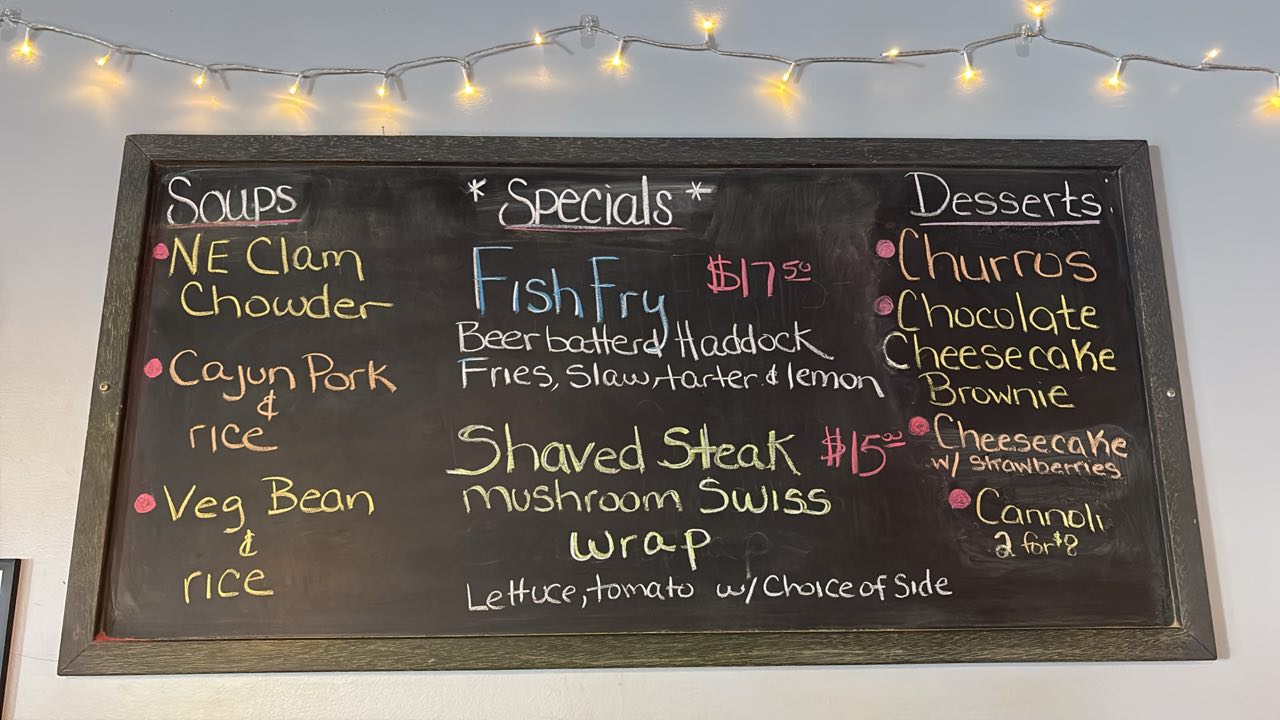 Soups
NE Clam
Chowder
Cajun Pork
&
rice
Veg Bean
&
rice
* Specials *
Fish Fry $17.50
Beer batterd Haddock
Fries, slaw, tarter & lemon
Shaved Steak $15.00
mushroom Swiss
wrap
Lettuce, tomato w/ Choice of Side
Desserts
Churros
Chocolate
Cheesecake
Brownie
Cheesecake
w/ strawberries
Cannoli
2 for $8